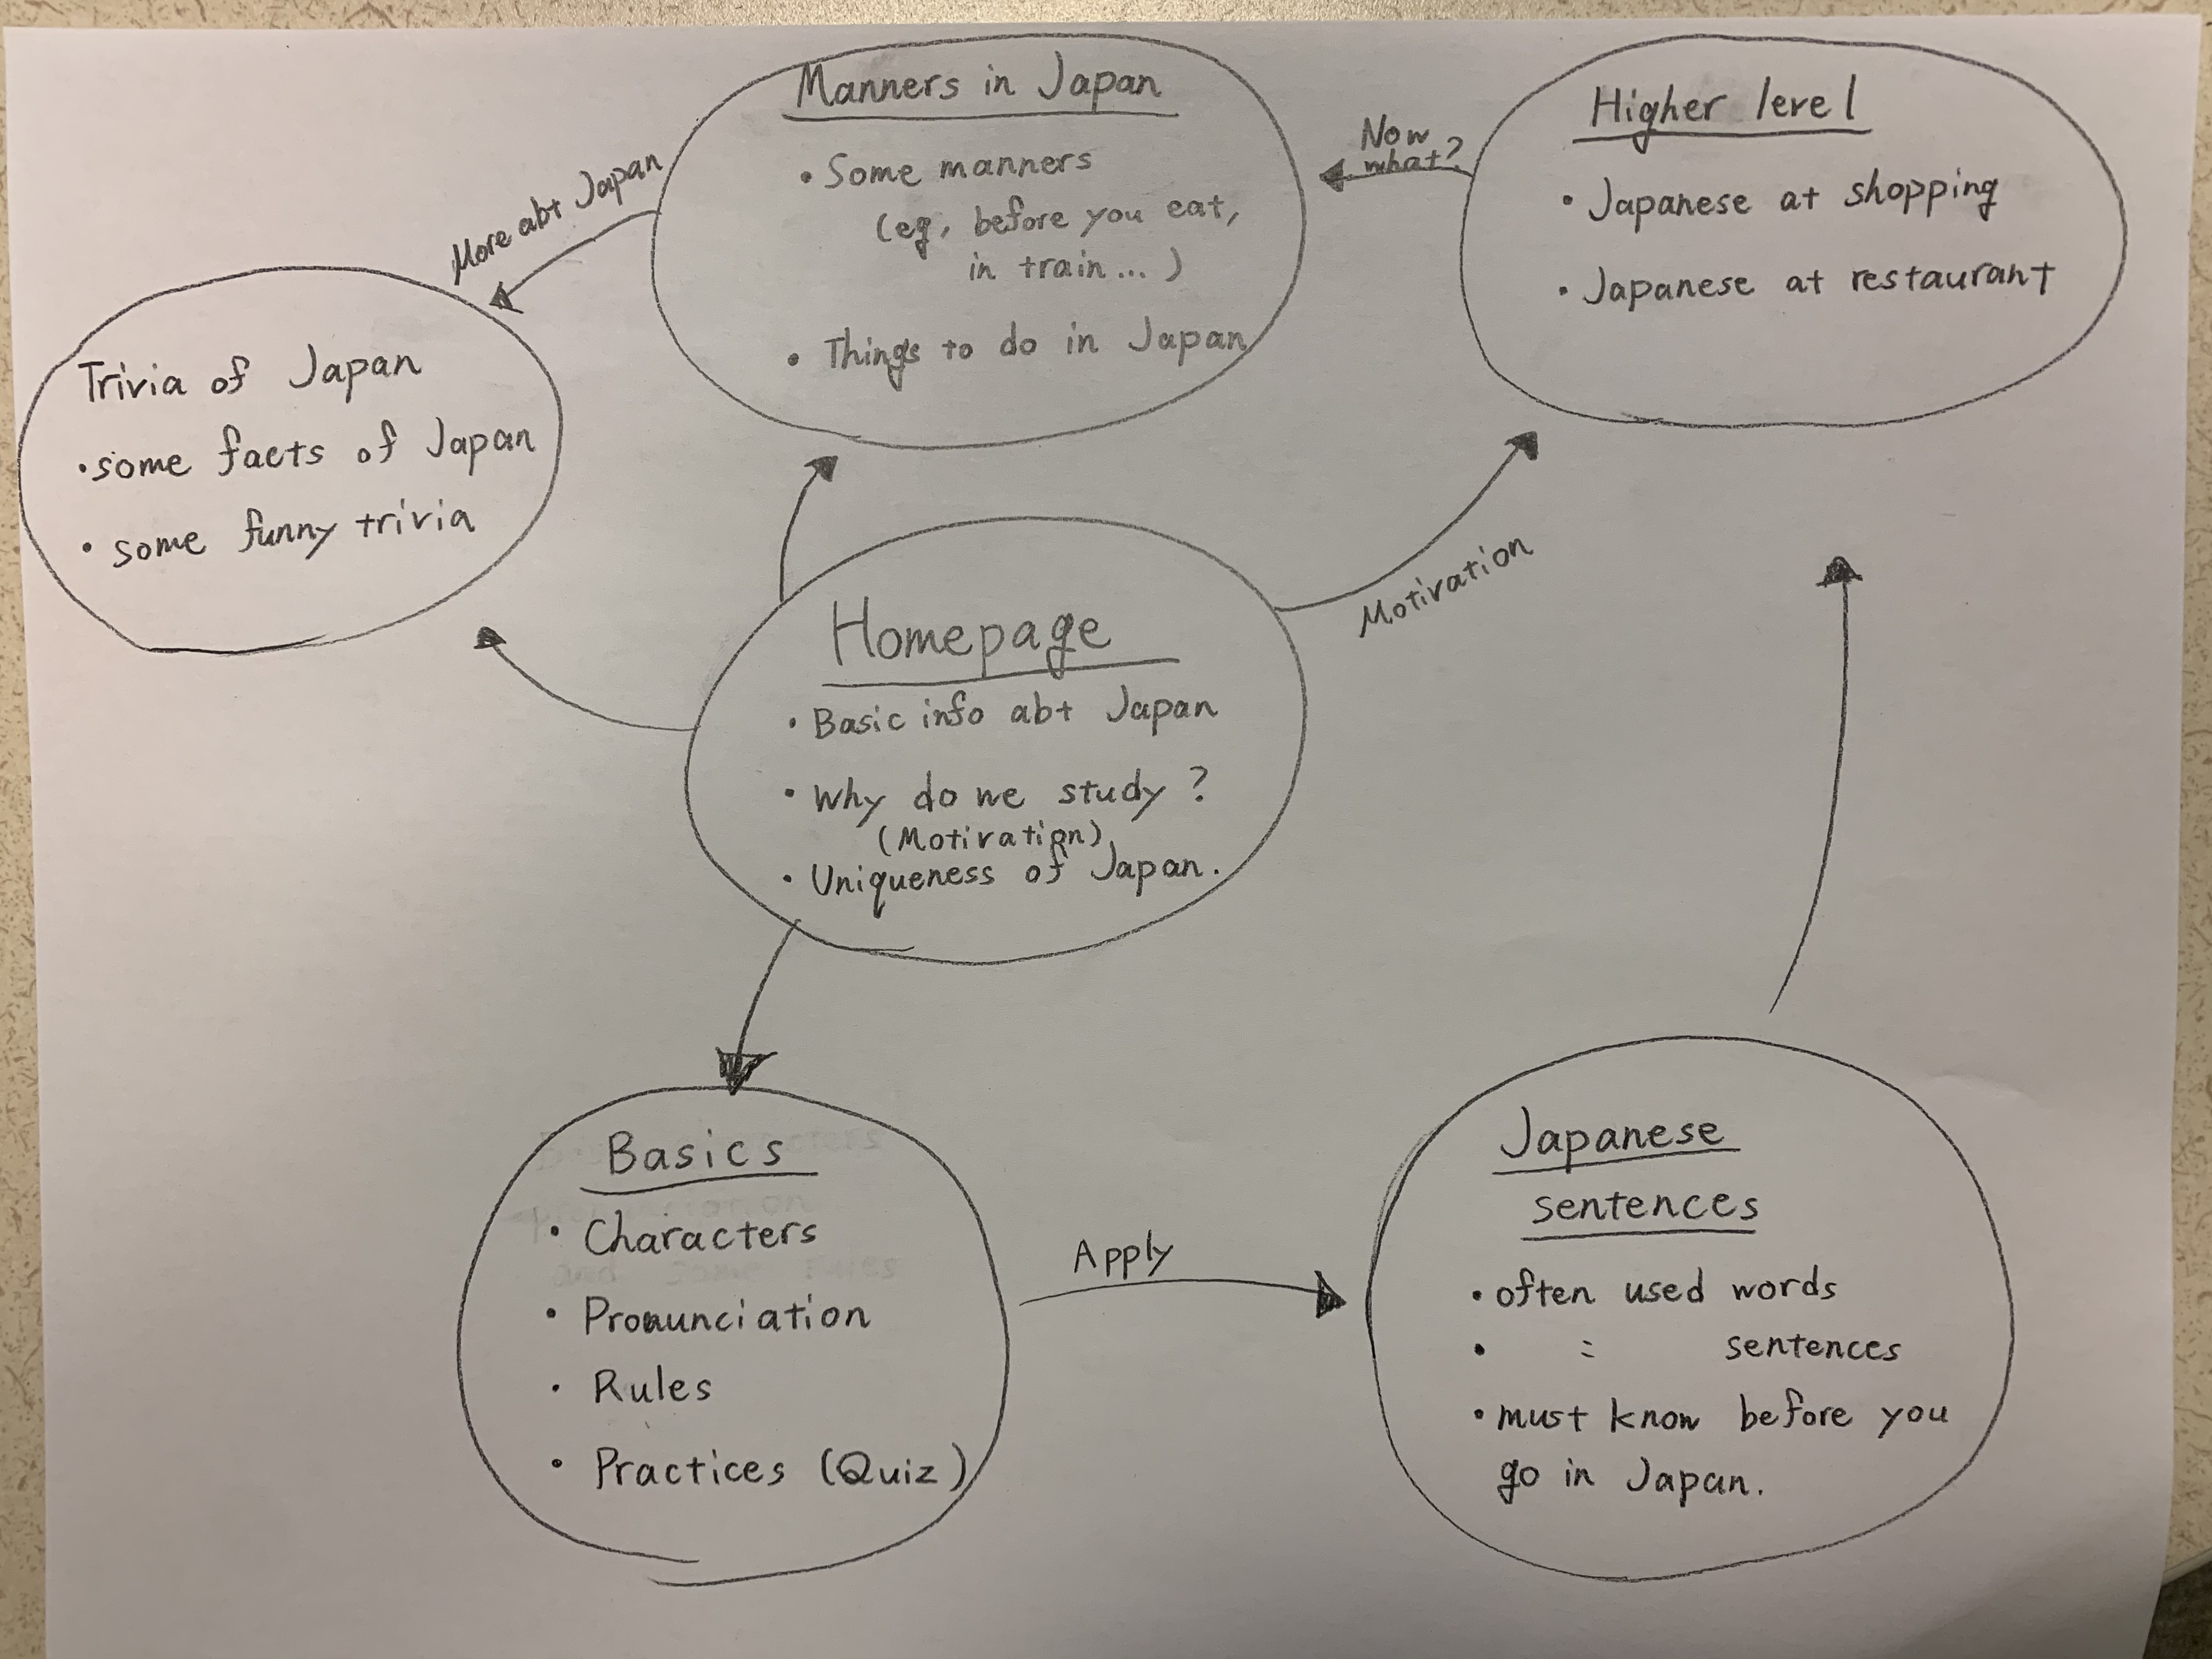 Manners in Japan
• Some manners
(eg, before you eat,
in train... )
• Things to do in Japan
Now
what?
Higher level
• Japanese at shopping
• Japanese at restaurant
More abt Japan
Trivia of Japan
• some facts of Japan
• some funny trivia
Motivation
Homepage
• Basic info abt Japan
• Why do we study ?
(Motivation)
• Uniqueness of Japan.
Basics
• Characters
• Pronunciation
• Rules
• Practices (Quiz)
Apply
Japanese
sentences
• often used words
• : sentences
• must know before you
go in Japan.